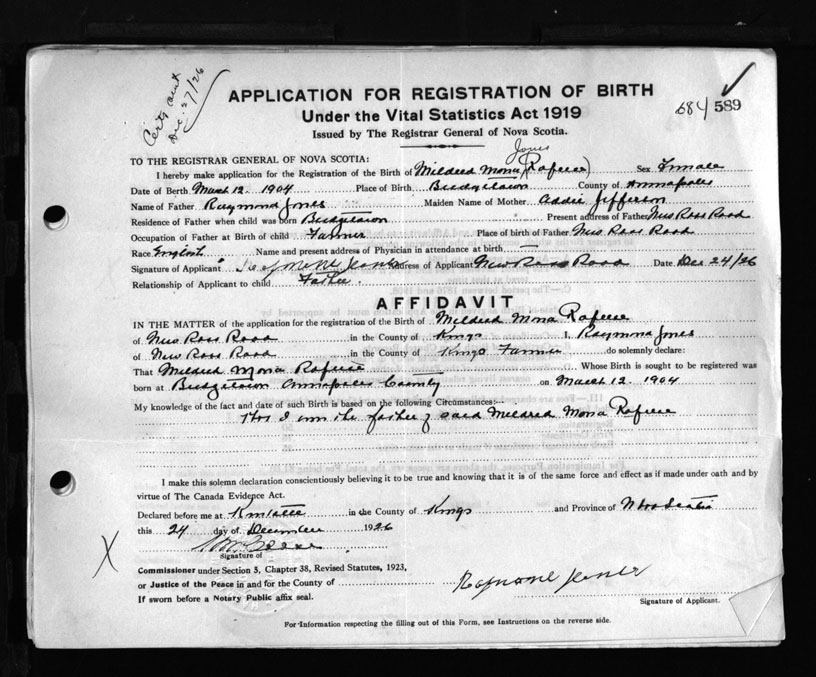 Dec. 27/26
APPLICATION FOR REGISTRATION OF BIRTH
Under the Vital Statistics Act 1919
684/ 589
Issued by The Registrar General of Nova Scotia.
Jones
TO THE REGISTRAR GENERAL OF NOVA SCOTIA:
I hereby make application for the Registration of the Birth of Mildred Mona (Rafuse) Sex Female
Date of Birth March 12. 1904 Place of Birth Bridgetown County of Annapolis
Name of Father Raymond Jones Maiden Name of Mother Addie Jefferson
Residence of Father when child was born Bridgetown Present address of Father New Ross Road
Occupation of Father at Birth of child Farmer Place of birth of Father New Ross Road
Race English Name and present address of Physician in attendance at birth. —
Signature of Applicant Address of Applicant New Ross Road Date Dec 24/26
Relationship of Applicant to child Father.
AFFIDAVIT
IN THE MATTER of the application for the registration of the Birth of Mildred Mona Rafuse
of New Ross Road in the County of Kings I, Raymond Jones
of New Ross Road in the County of Kings Farmer do solemnly declare:
That Mildred Mona Rafuse Whose Birth is sought to be registered was
born at Bridgetown Annapolis County on March 12. 1904
My knowledge of the fact and date of such Birth is based on the following Circumstances:—
that I am the father of said Mildred Mona Rafuse
I make this solemn declaration conscientiously believing it to be true and knowing that it is of the same force and effect as if made under oath and by
virtue of The Canada Evidence Act.
Declared before me at Kentville in the County of Kings and Province of Nova Scotia
this 24 day of December 1926
Signature of
Commissioner under Section 3, Chapter 38, Revised Statutes, 1923,
or Justice of the Peace in and for the County of
Raymond Jones
If sworn before a Notary Public affix seal.
Signature of Applicant.
For Information respecting the filling out of this Form, see Instructions on the reverse side.